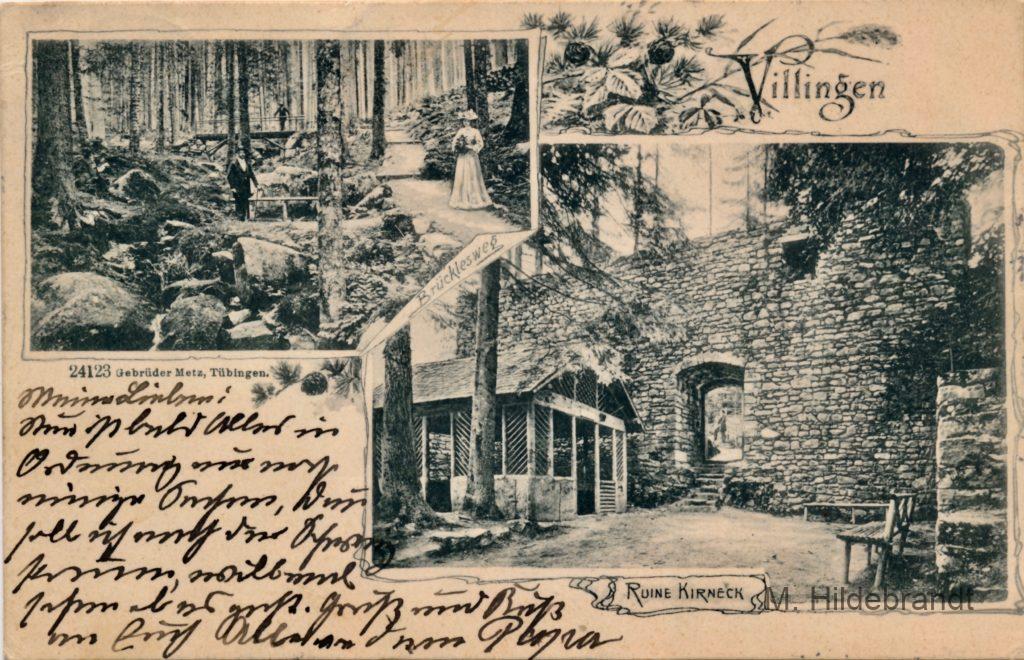 Villingen
Brücklesweg
24123 Gebrüder Metz, Tübingen.
Ruine Kirneck
M. Hildebrandt
Meine Lieben!
Nun ist bald Alles in
Ordnung nur noch
einige Sachen, dann
soll ich nach der
will mal
sehen ob es geht. Gruß und Kuß
an Euch Alle